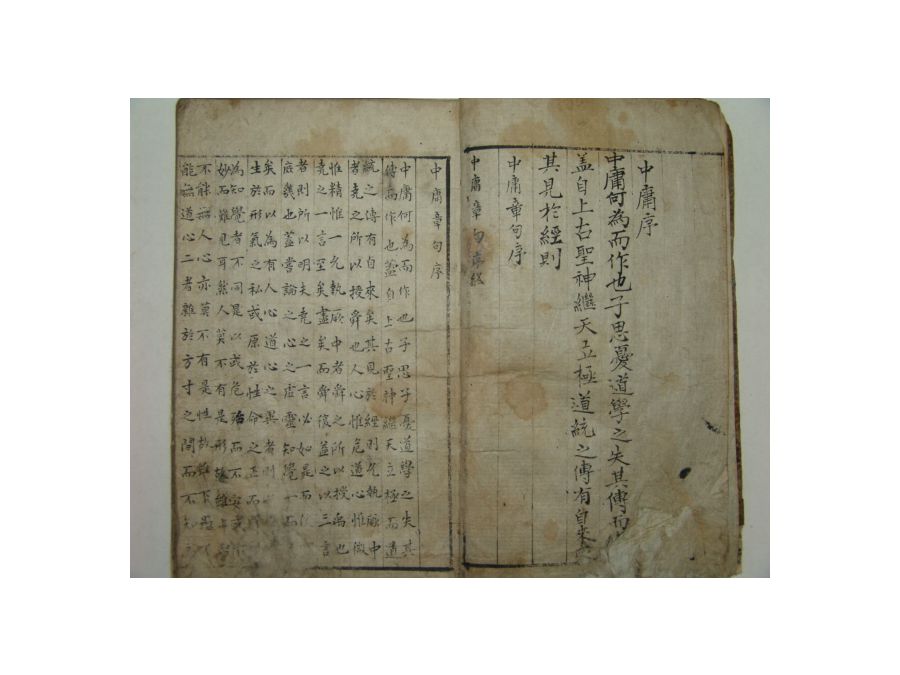 中庸序
中庸何為而作也子思憂道學之失其傳而
盖自上古聖神繼天立極道統之傳有自來
其見於經則
中庸章句序
中庸章句序
中庸章句序
中庸何為而作也子思子憂道學之失其
傳而作也盖自上古聖神繼天立極而道
統之傳有自來矣其見於經則允執厥中
者堯之所以授舜也人心惟危道心惟微
惟精惟一允執厥中者舜之所以授禹也
堯之一言至矣盡矣而舜復益之以三言
者則所以明夫堯之一言必如是而
庶幾也盖嘗論之心之虛靈知覺一而
矣而以為有人心道心之異者則
生於形氣之私或原於性命之正而
為知覺者不同是以或危殆而不安或
妙而難見耳然人莫不有是形故雖上
不能無人心亦莫不有是性故雖下愚
能無道心二者雜於方寸之間而不知